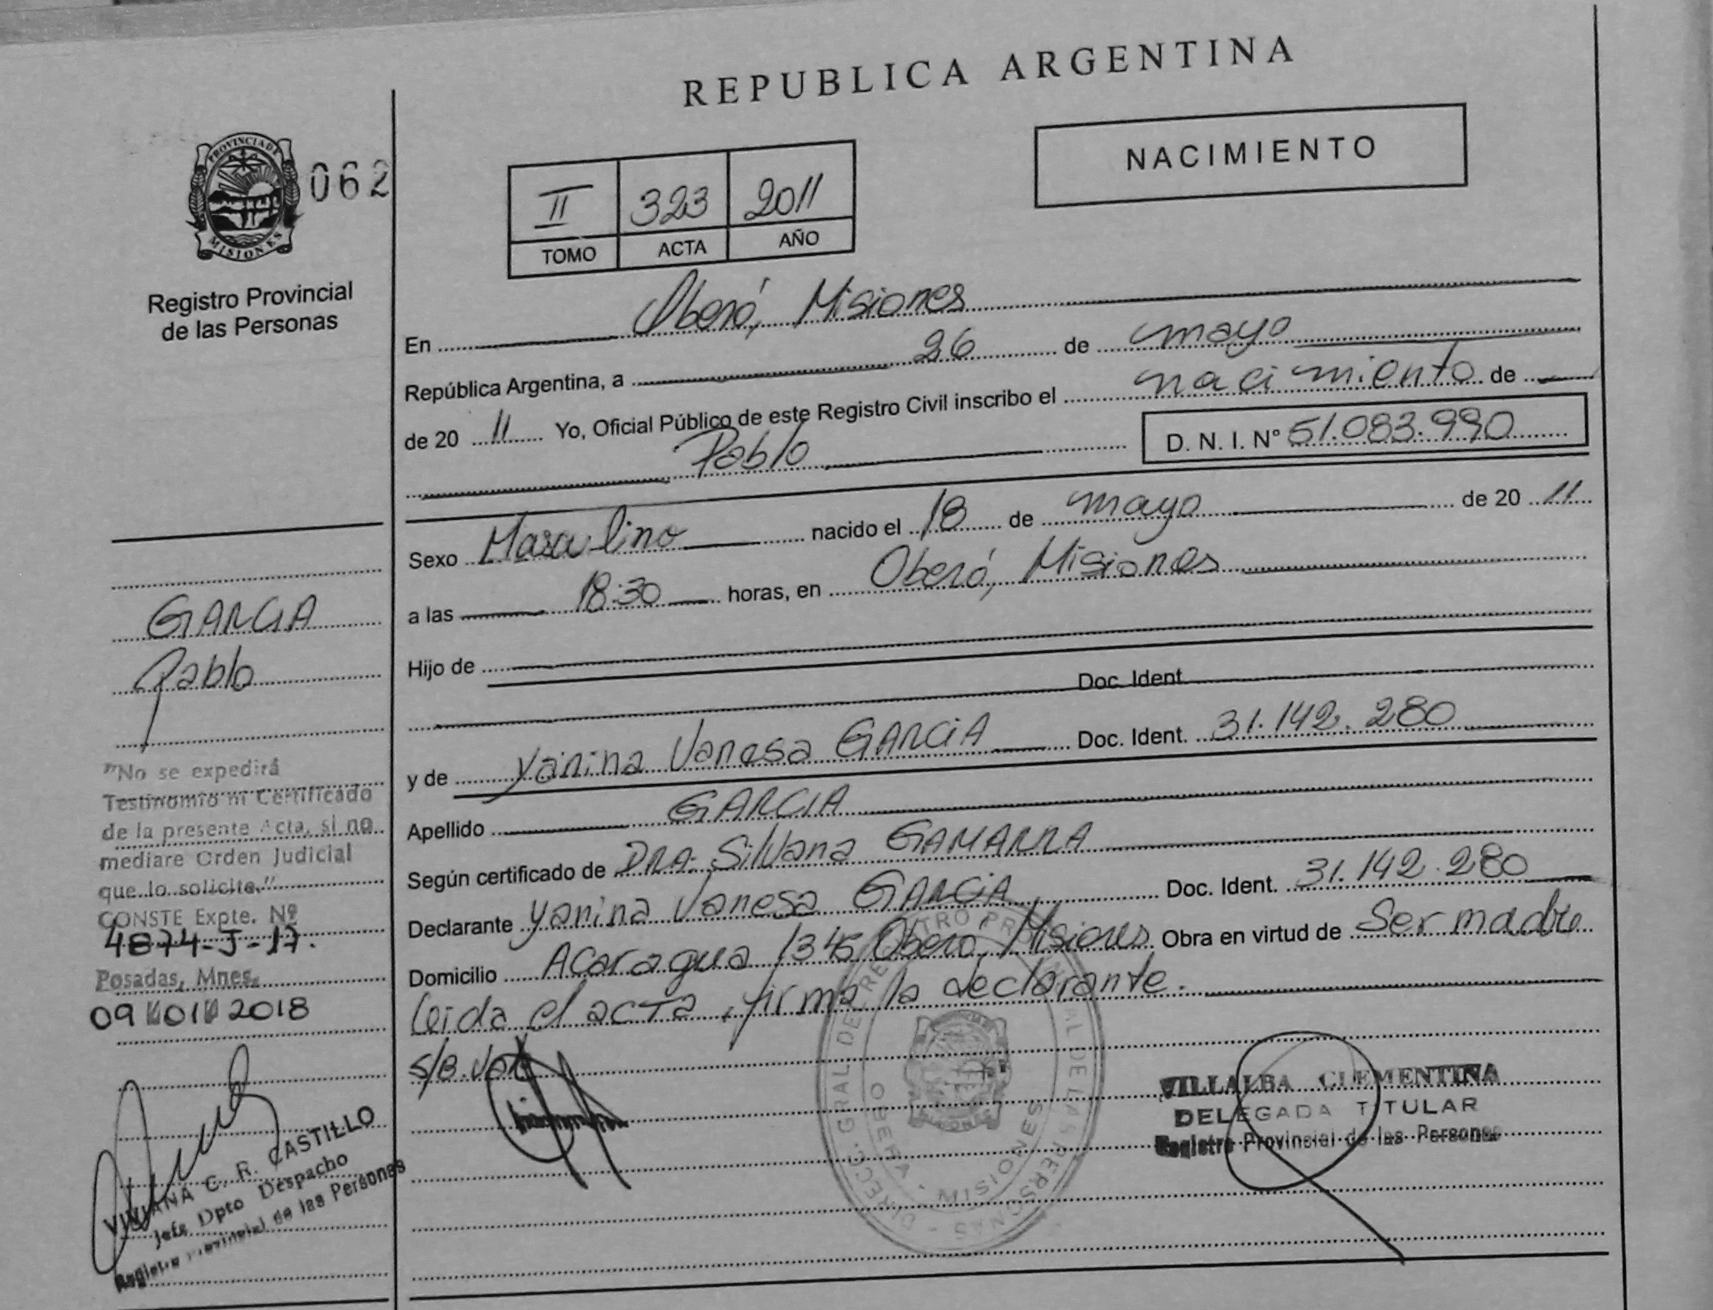 REPUBLICA ARGENTINA
NACIMIENTO
PROVINCIA DE
MISIONES
062
Registro Provincial
de las Personas
II 323 2011
TOMO ACTA AÑO
En Oberá, Misiones
República Argentina, a 26 de mayo
de 20 11 Yo, Oficial Público de este Registro Civil inscribo el nacimiento de
Pablo D. N. I. N° 51.083.990
Sexo Masculino nacido el 18 de mayo de 20 11
a las 18:30 horas, en Oberá, Misiones
Hijo de
Doc. Ident.
y de Yanina Vanesa GARCIA Doc. Ident. 31.142.280
Apellido GARCIA
Según certificado de DRA. Silvana GAMARRA
Declarante Yanina Vanesa GARCIA Doc. Ident. 31.142.280
Domicilio Acaragua 1345 Oberá, Misiones Obra en virtud de Ser madre
leida el acta, firma la declarante.
GARCIA
Pablo
"No se expedirá
Testimonio ni Certificado
de la presente Acta, si no
mediare Orden Judicial
que lo solicite."
CONSTE Expte. Nº
4874-J-17.
Posadas, Mnes.
09 01 2018
VIVIANA C. R. CASTILLO
Jefe Dpto Despacho
Registro Provincial de las Personas
DIRECC. GRAL. DE REGISTRO PROVINCIAL DE LAS PERSONAS
OBERA - MISIONES
VILLALBA CLEMENTINA
DELEGADA TITULAR
Registro Provincial de las Personas